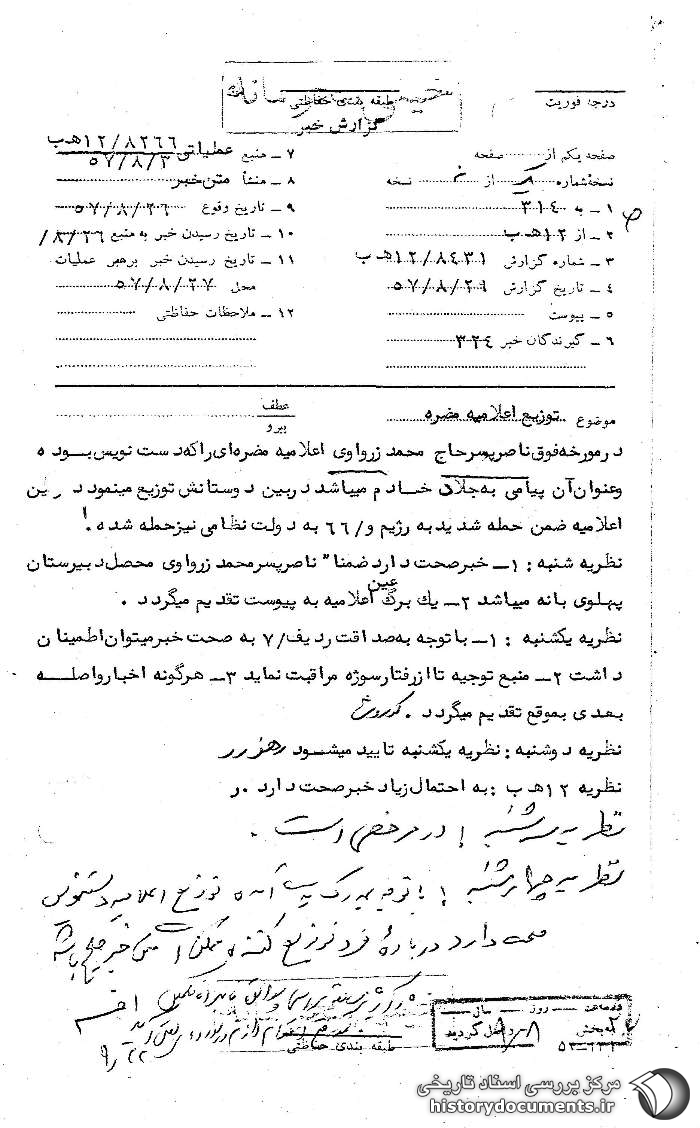 درجه فوریت
طبقه بندی حفاظتی
گزارش خبر
صفحه یکم از صفحه
نسخه شماره از نسخه
۱ ــ به ۳۱۴
۲ ــ از ۱۲ ه‍ ب
۳ ــ شماره گزارش ۱۲/۸۴۳۱ ه‍ ب
۴ ــ تاریخ گزارش ۵۷/۸/۲۹
۵ ــ پیوست
۶ ــ گیرندگان خبر ۳۲۴
۷ ــ منبع عملیاتی ۱۲/۸۲۶۶ ه‍ ب
۵۷/۸/۳
۸ ــ منشأ متن خبر
۹ ــ تاریخ وقوع ۵۷/۸/۲۶
۱۰ ــ تاریخ رسیدن خبر به منبع ۸/۲۶/
۱۱ ــ تاریخ رسیدن خبر برهبر عملیات
محل ۵۷/۸/۲۷
۱۲ ــ ملاحظات حفاظتی
موضوع توزیع اعلامیه مضره
عطف
پیرو
درمورخه فوق ناصر پسر حاج محمد زرواوی اعلامیه مضره‌ای را که دست نویس بوده
وعنوان آن پیامی به جلاد خادم میباشد دربین دوستانش توزیع مینمود در این
اعلامیه ضمن حمله شدید به رژیم و/۶۶ به دولت نظامی نیز حمله شده !
نظریه شنبه : ۱ــ خبر صحت دارد ضمنا" ناصر پسر محمد زرواوی محصل دبیرستان
پهلوی بانه میباشد ۲ــ یك برگ عین اعلامیه به پیوست تقدیم میگردد .
نظریه یکشنبه : ۱ــ باتوجه به صداقت ردیف/۷ به صحت خبر میتوان اطمینان
داشت ۲ــ منبع توجیه تا از رفتار سوژه مراقبت نماید ۳ــ هرگونه اخبار واصلـه
بعدی بموقع تقدیم میگردد . کوروش
نظریه دوشنبه : نظریه یکشنبه تایید میشود
نظریه ۱۲ ه‍ ب : به احتمال زیاد خبر صحت دارد . ر
نظریه سه شنبه ! در مرخصی است .
نظریه چهارشنبه ! با توجه بمدرک بدست آمده توزیع اعلامیه دستنویس
صحت دارد درباره فرد توزیع کننده ممکن است متن خبر صحیح باشد
طبقه بندی حفاظتی
روز سال
به بخش گردید
مرکز بررسی اسناد تاریخی
historydocuments.ir